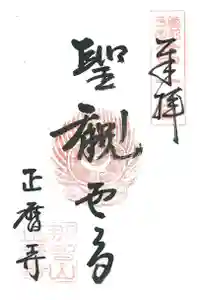 奉拝
聖観世音
正暦寺